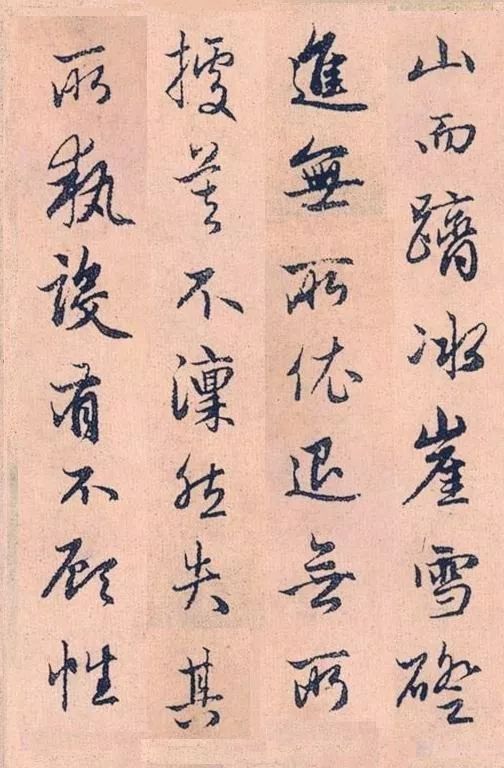 山而躋冰崖雪磴
進無所依退無所
據莫不凜然失其
所執設有不顧性